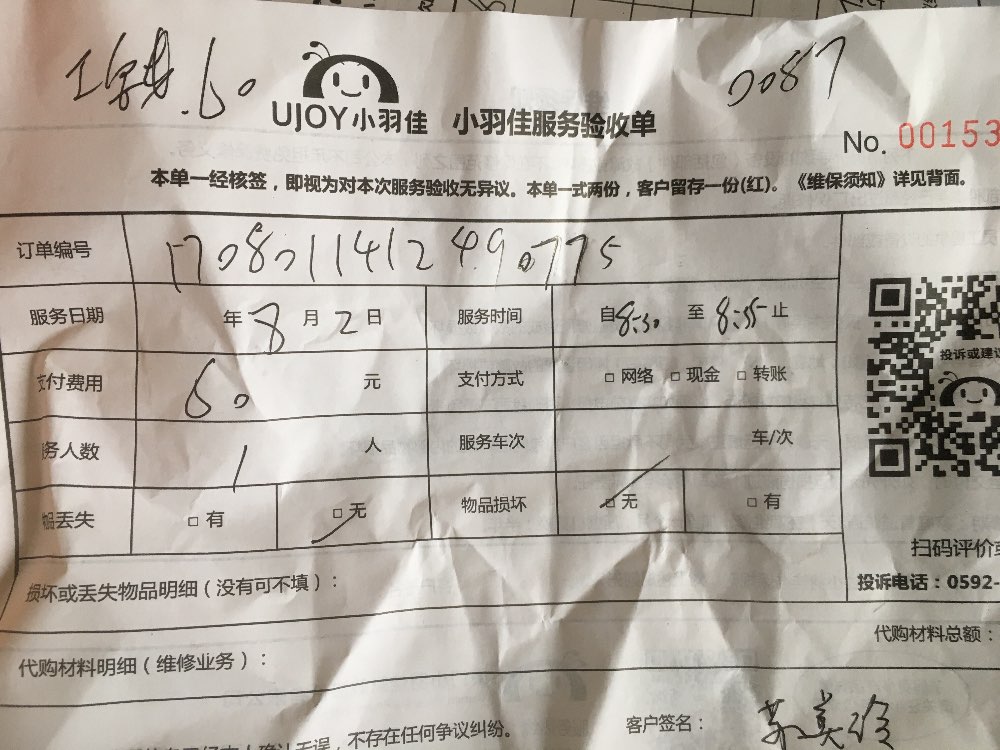 .60
0087
UJOY小羽佳 小羽佳服务验收单
No. 00153
本单一经核签，即视为对本次服务验收无异议。本单一式两份，客户留存一份(红)。《维保须知》详见背面。
订单编号 1708011412490775
服务日期 年 8 月 2 日 服务时间 自 8:30 至 8:55 止
投诉或建议
支付费用 60 元 支付方式 □ 网络 □ 现金 □ 转账
务人数 1 人 服务车次 车/次
丢失 □ 有 □ 无 物品损坏 □ 无 □ 有
扫码评价或
损坏或丢失物品明细（没有可不填）：
投诉电话：0592-
代购材料总额：
代购材料明细（维修业务）：
确认无误，不存在任何争议纠纷。
客户签名：